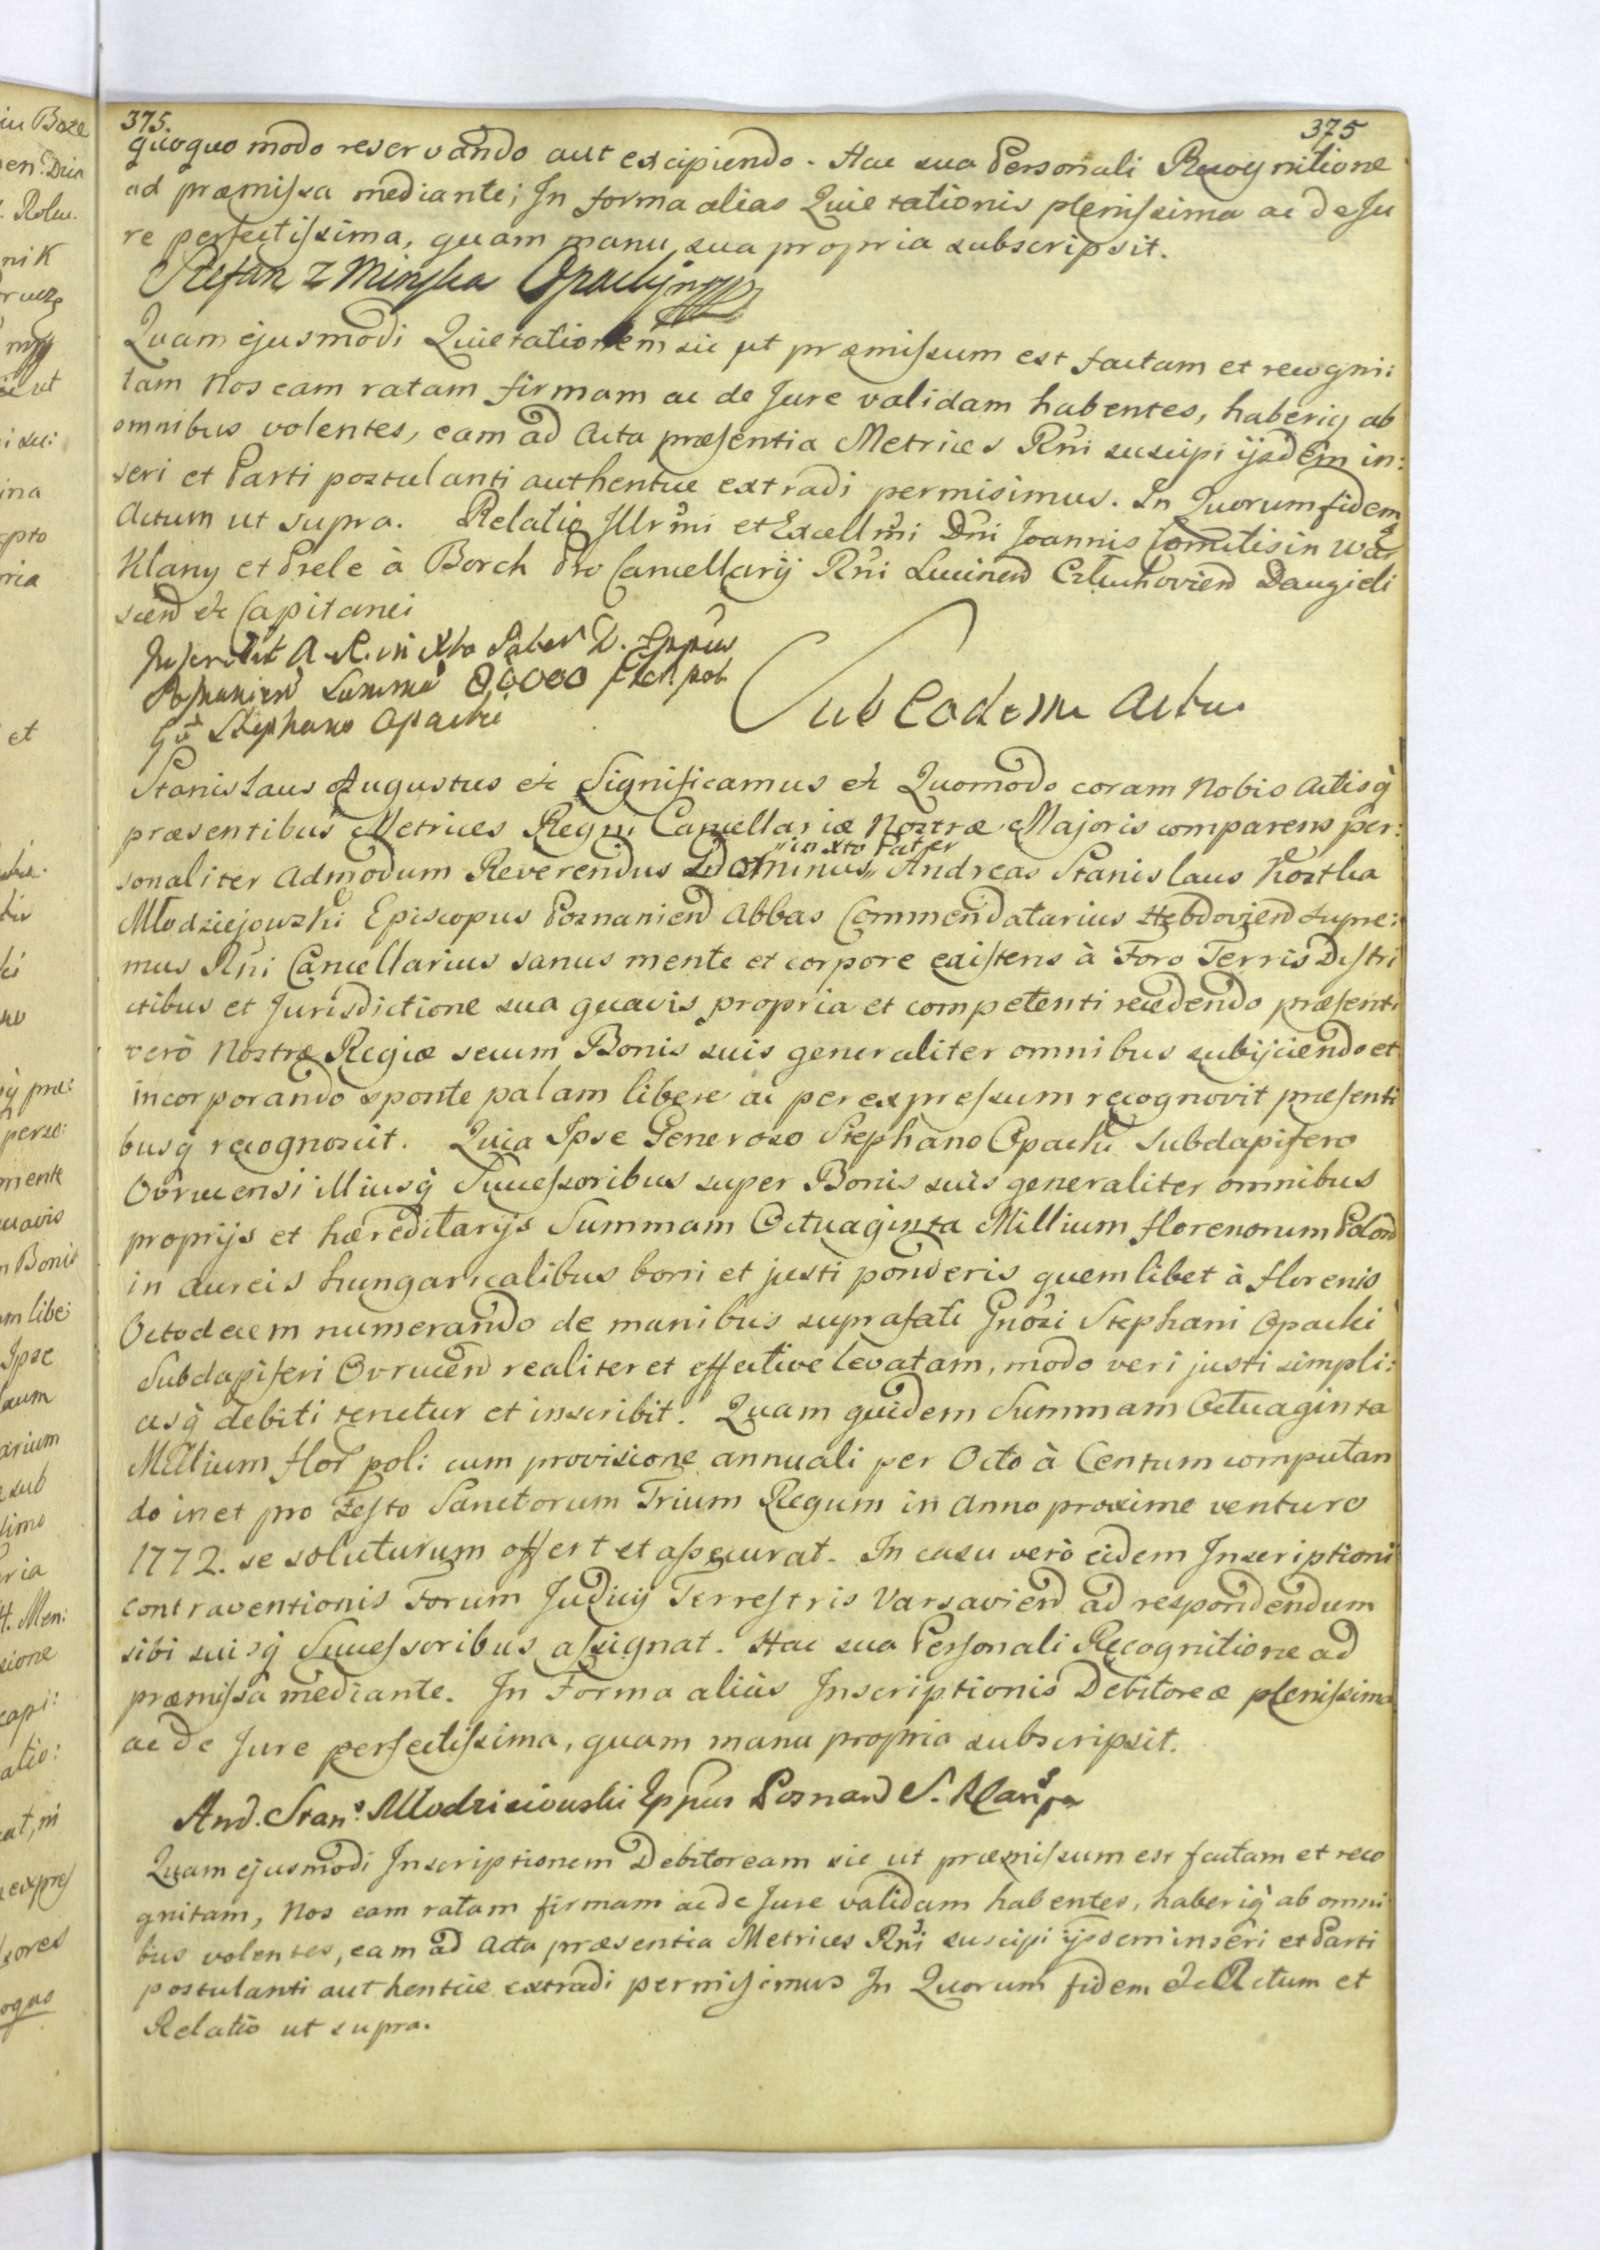 375. 375
quoquo modo reservando aut excipiendo. Hac sua Personali Recognitione
ad præmissa mediante; In forma alias Quietationis plenissima ac de Ju
re perfectissima, quam manu sua propria subscripsit.
Stefan z Minska Opacki mpp
Quam ejusmodi Quietationem sic ut præmissum est factam et recogni:
tam Nos eam ratam firmam ac de Jure validam habentes, haberiq ab
omnibus volentes, eam ad Acta præsentia Metrices Rni suscipi ijsdem in:
seri et Parti postulanti authentice extradi permisimus. In Quorum fidem
Actum ut supra. Relatio Illrmi et Excellmi Dni Joannis Comitis in War
Klany et Prele à Borch Pro Cancellarij Rni Lucinen Czluchovien Daugieli
scen & Capitanei
Inscribit A. R. in Xto Pater D. Eppus
Posnanien Summã 80,000 flor. pol.
Gō Stephano Opacki
Sub Eodem Actu
Stanislaus Augustus & Significamus & Quomodo coram Nobis Actisq̀
præsentibus Metrices Regni Cancellariæ Nostræ Majoris comparens per:
sonaliter Admodum Reverendus Dominus "in Xto Pater" Andreas Stanislaus Kostka
Młodziejowski Episcopus Posnanien Abbas Commendatarius Hebdovien Supre:
mus Rni Cancellarius sanus mente et corpore existens à Foro Terris Distri
ctibus et Jurisdictione sua quavis propria et competenti recedendo præsenti
verò Nostræ Regiæ secum Bonis suis generaliter omnibus subijciendo et
incorporando sponte palam libere ac per expressum recognovit præsenti
busq̀ recognoscit. Quia Ipse Generoso Stephano Opacki Subdapifero
Ovrucensi illiusq̀ Successoribus super Bonis suis generaliter omnibus
proprijs et hæreditarijs Summam Octuaginta Millium florenorum Polon
in aureis hungaricalibus boni et justi ponderis quemlibet à florenis
Octodecem numerando de manibus suprafati Gnosi Stephani Opacki
Subdapiferi Ovrucen realiter et effective levatam, modo veri justi simpli:
cisq̀ debiti tenetur et inscribit. Quam quidem Summam Octuaginta
Millium flor pol: cum provisione annuali per Octo à Centum computan
do in et pro Festo Sanctorum Trium Regum in Anno proxime venturo
1772. se soluturum offert et assecurat. In casu verò eidem Inscriptioni
contraventionis Forum Judicij Terrestris Varsavien ad respondendum
sibi suisq̀ Successoribus assignat. Hac sua Personali Recognitione ad
præmissa mediante. In Forma aliùs Inscriptionis Debitoreæ plenissima
ac de Jure perfectissima, quam manu propria subscripsit.
And. Stans. Młodzieiowski Eppus Posnan S.
Quam ejusmodi Inscriptionem Debitoream sic ut præmissum est factam et reco
gnitam, Nos eam ratam firmam ac de Jure validam habentes, haberiq̀ ab omni
bus volentes, eam ad Acta præsentia Metrices Rni suscipi ijsdem inseri et Parti
postulanti authentice extradi permisimus In Quorum fidem & Actum et
Relatio ut supra.